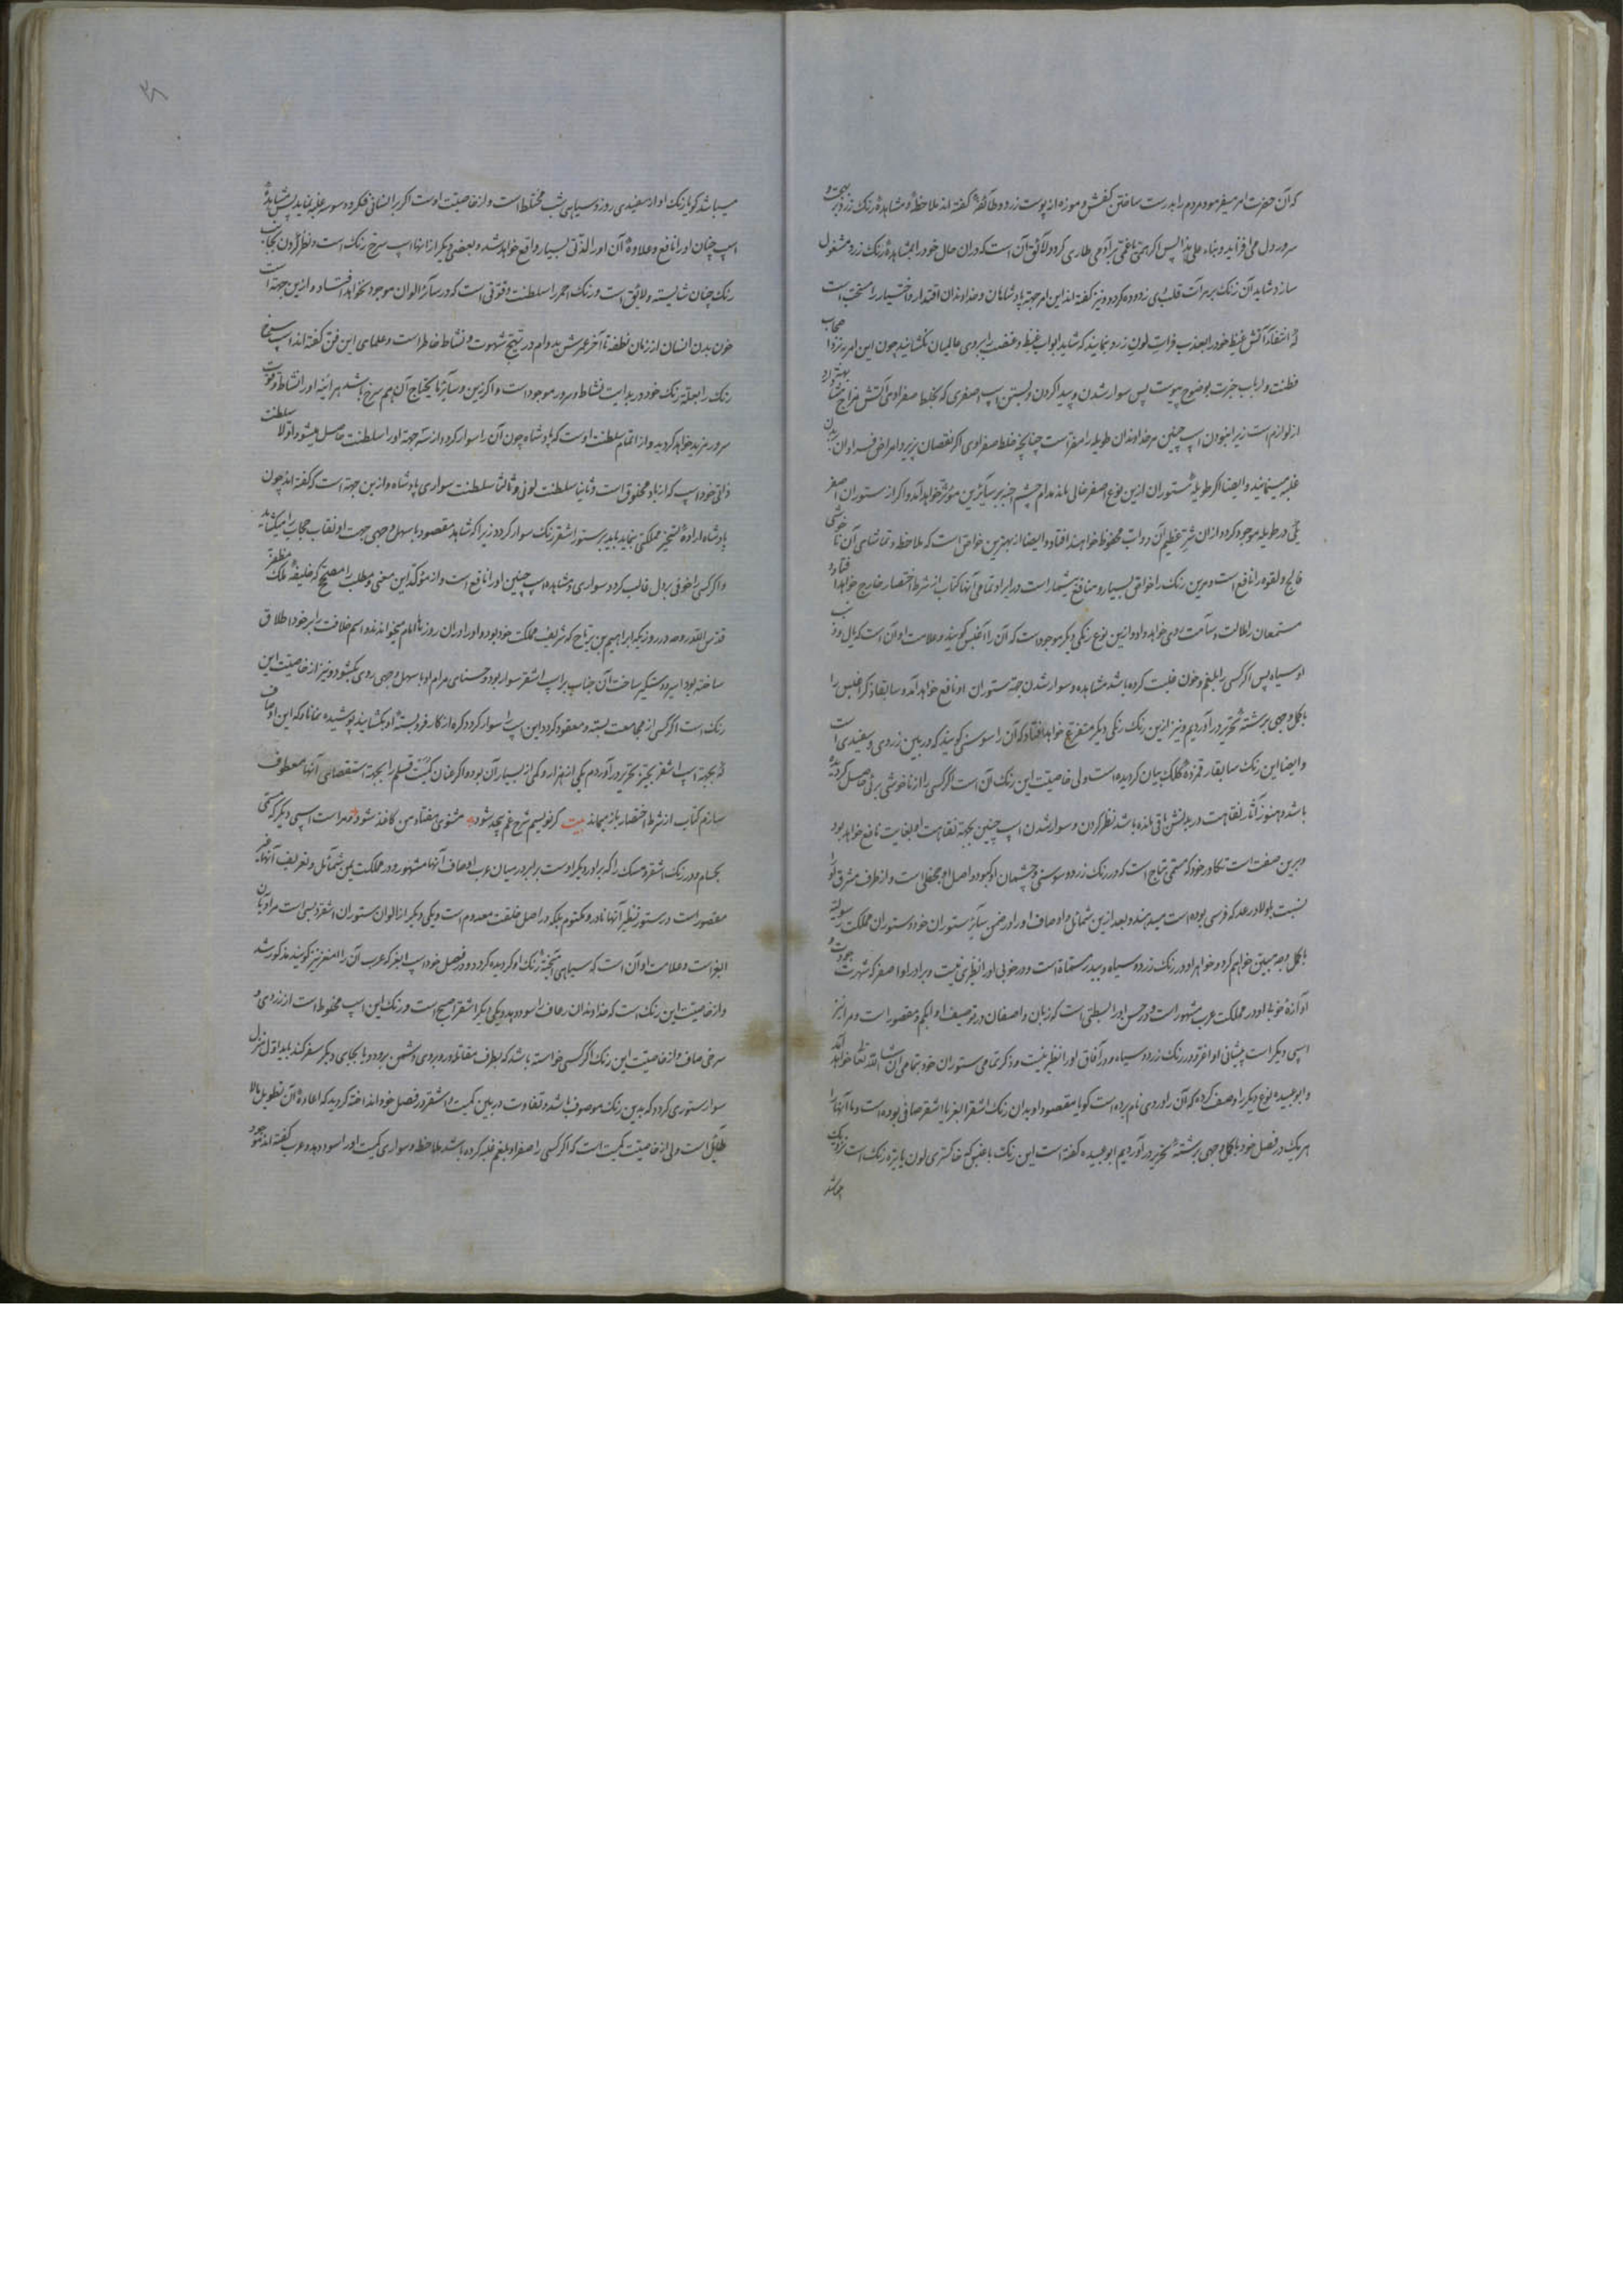 که آن حضرت امر میفرمود مردم را بدرست ساختن کفش و موزه از پوست زرد و طائفهٔ گفته اند ملاحظه و مشاهدهٔ رنک زرد بهجت و
سرور دل می افزاید و بناء علی هذا پس اگر همی یا غمی بر آدمی طاری کردد لائق آن است که دران حال خود را بمشاهدهٔ رنک زرد مشغول
سازد شاید آن رنک بر مرآت قلب وی زدوده کردد و نیز گفته اند این امر جهة پادشاهان و خداوندان اقتدار و اختیار را مستحب است
که انتفاء آتش غیظ خود را بعذب فرات لون زرد نمایند که شاید ابواب غیظ و غضب را بروی عالمیان نکشانید چون این امر نزد اصحاب
فطنت و ارباب خبرت بوضوح پیوست پس سوار شدن و پیدا کردن و بستن اسپ اصفری که بخلط صفراوی آتش مزاج
از لوازم است زیرا نبودن اسپ چنین مر خداوندان طویله را مضر است چنانچه خلط صفراوی اگر نقصان پزیرد امراض فراوان بر بدن
غلبه مینمایند و ایضا اگر طویلهٔ ستوران ازین نوع اصفر خالی ماند مدام چشم اجنه بر سائرین مؤثر خواهد آمد و اکر از ستوران اصفر
یکی در طویله موجود کردد ازان شر عظیم آن دواب محفوظ خواهند افتاد و ایضا از بهترین خواص است که ملاحظه و تماشای آن ناخوشی
فالج و لقوه را نافع است و مرین رنک را خواص بسیار و منافع بیشمار است در ایراد تمامی آنها کتاب از شرط اختصار خارج خواهد افتاد و
مستمعان را ملالت و سآمت روی خواهد داد و ازین نوع رنکی دیکر موجود است که آن را اغبس گویند و علامت او آن است که یال و ذنب
او سیاه پس اگر کسی را بلغم و خون غلبت کرده باشد مشاهده و سوار شدن جهة ستوران او نافع خواهد آمد و سابقا ذکر اغبس را
باکمل وجهی برشتهٔ تحریر در آوردیم و نیز ازین رنک رنکی دیکر متفرع خواهد افتاد که آن را سوسنی گویند که در بین زردی و سفیدی است
و ایضا این رنک سابقا رقمزدهٔ کلک بیان کردیده است ولی خاصیت این رنک آن است اگر کسی را از ناخوشی برئی حاصل کردیده
باشد و هنوز آثار نقاهت در بدنش باقی مانده باشد نظر کردن و سوار شدن اسپ چنین بجهة نقاهت او بغایت نافع خواهد بود
و برین صفت است تکاور خود که مسمی بتاج است که در رنک زرد و سوسنی و چشمان او کبود و اصل او مجفلی است و از طرف مشرق او را
نسبت باولاد رعد که فرسی بوده است میدهند و بعد ازین شمائل و اوصاف او را در ضمن سائر ستوران خود و ستوران مملکت
باکمل وجه مبین خواهیم کرد و خواهر او در رنک زرد و سیاه و بیدر مسماة است و در خوبی او را نظیری نیست و برادر او اصفر که شهرت وجودت و
آوازهٔ خوبی او در مملکت عرب مشهور است و در حسن او را بسطتی است که زبان واصفان در توصیف او ابکم و مقصور است و مرا نیز
اسپی دیکر است پیشانی او اغر و در رنک زرد و سیاه و در آفاق او را نظیر نیست و ذکر تمامی ستوران خود بتمامی ان شاء الله تعالی خواهد آمد
و ابو عبیده نوع دیکر را وصف کرده که آن را وردی نام برده است کویا مقصود او بدان رنک اشقر ابغر یا اشقر صافی بوده است و ما آنها را
هر یک در فصل خود باکمل وجهی برشتهٔ تحریر در آوردیم ابو عبیده گفته است این رنک با غبس که خاکستری لون یا تیره رنک است نزدیک
میباشد کویا رنک او از سفیدی روز و سیاهی شب مختلط است و از خاصیت اوست اکر بر انسانی فکر و وسوسه غلبه نماید پس مشاهدهٔ
اسپ چنان او را نافع و علاوهٔ آن او را لذتی بسیار واقع خواهد شد و بعضی دیکر از انها اسپ سرخ رنک است و نظر کردن بجانب
رنک چنان شایسته و لائق است و رنک احمر را سلطنت و قوتی است که در سائر الوان موجود نخواهد افتاد و ازین جهة است
خون بدن انسان از زمان نطفه تا آخر عمرش بدوام در تهیج شهوت و نشاط خاطر است و علمای این فن گفته اند اسپ سرخ
رنک را بعلة رنک خود در بدایت نشاط و سرور موجود است و اکر زین و سائر ما یحتاج آن هم سرخ باشد هر آئینه او را نشاط و قوت
سرور مزید خواهد کردید و از اتمام سلطنت اوست که پادشاه چون آن را سوار کردد از سه جهة او را سلطنت حاصل میشود اولا سلطنت
ذاتی خود اسپ که از باد مخلوق است و ثانیا سلطنت لونی و ثالثا سلطنت سواری پادشاه و ازین جهة است که گفته اند چون
پادشاه ارادهٔ تسخیر مملکتی نماید باید بر ستور اشقر رنک سوار کردد زیرا که شاهد مقصود باسهل وجهی جهت او نقاب حجاب را میکشاید
و اکر کسی را خوفی بر دل غالب کردد سواری و مشاهده اسپ چنین او را نافع است و از مؤکد این معنی و مطلب را مصحح که خلیفه ملک مظفر
قدس الله روحه در روزیکه ابراهیم بن تاج که شریف مملکت خود بود و او را دران روزها امام میخواندند و اسم خلافت را بر خود اطلاق
ساخته بود اسیر و دستکیر ساخت آن جناب بر اسپ اشقر سوار بود و حسنای مرام او باسهل وجهی روی بکشود و نیز از خاصیت این
رنک است اکر کسی از مجامعت بسته و معقود کردد این اسپ را سوار کردد کره از کار فرو بستهٔ او بکشایند پوشیده نماناد که این اوصاف
که بجهة اسپ اشقر بحیز تحریر در آوردم یکی از هزار و کمی از بسیار آن بود و اکر عنان کمیت قلم را بجهة استقصای آنها معطوف
سازم کتاب از شرط اختصار باز میماند بیت کر نویسم شرح غم بیحد شود مثنوی هفتاد من کاغذ شود و مراست اسپی دیکر که مسمی
بحسام و در رنک اشقر و مسک را که برادر دیکر اوست برابر در میان عرب اوصاف آنها مشهور و در مملکت یمن شمائل و تعریف آنها
مقصور است در ستور نظیر آنها نادر و مکتوم بلکه در اصل خلقت معدوم است و یکی دیکر از الوان ستوران اشقر دبسی است مرادیان
ابغر است و علامت او آن است که سیاهی آمیختهٔ رنک او کردیده کردد و در فصل خود اسپ ابغر که عرب آن را امغر نیز گویند مذکور شد
و از خاصیت این رنک است که خداوندان رعاف را سود دهد و یکی دیکر اشقر اصبح است و رنک این اسپ مخلوط است از زردی و
سرخی صاف و از خاصیت این رنک اکر کسی خواسته باشد که بطرف مقاتله و روبروی دشمن برود و یا بجای دیکر سفر کند باید اول منزل
سوار ستوری کردد که بدین رنک موصوف باشد و تفاوت در بین کمیت و اشقر در فصل خود انداخته کردید که اعادهٔ آن تطویل بلا
طائل است ولی از خاصیت کمیت است که اکر کسی را صفرا و بلغم غلبه کرده باشد ملاحظه و سواری کمیت او را سود دهد و عرب گفته اند